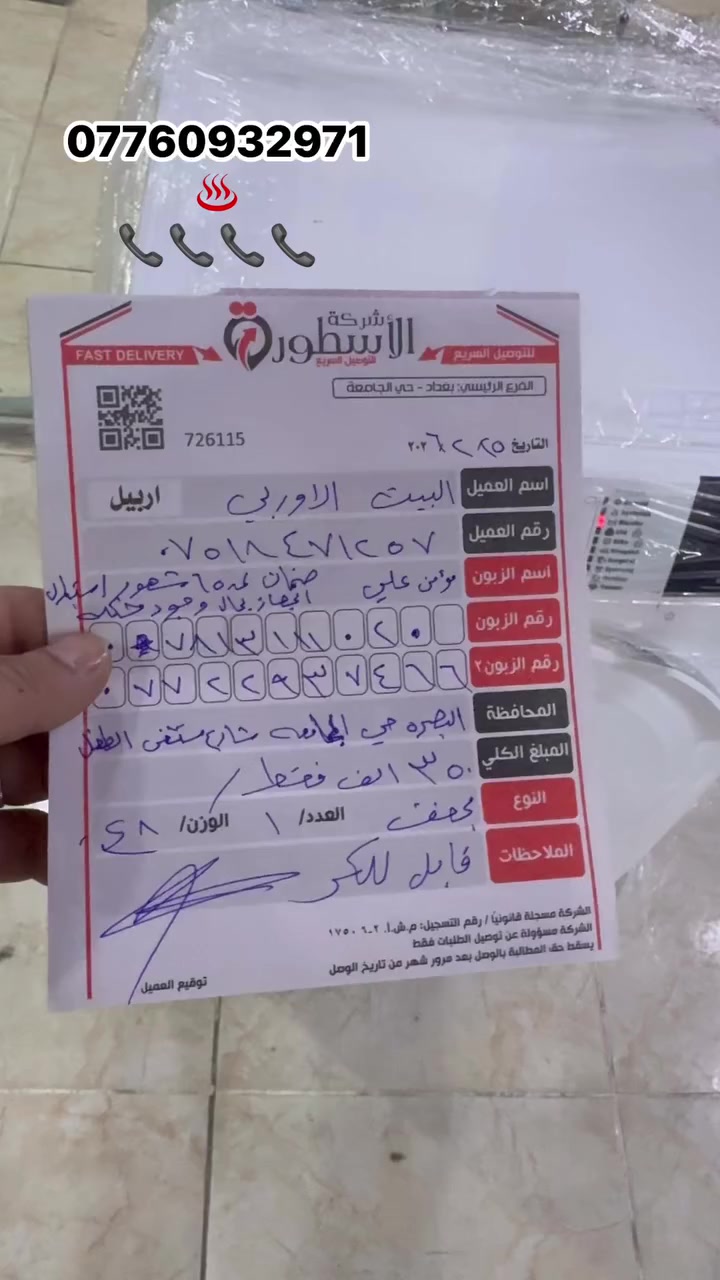 07760932971
شركة
الأسطورة
للتوصيل السريع
FAST DELIVERY
للتوصيل السريع
الفرع الرئيسي: بغداد - حي الجامعة
726115
التاريخ ٢٥ / ٢ / ٢٠٢٦
اسم العميل البيت الاوربي اربيل
رقم العميل ٠٧٥١٨٤٧١٢٥٧
اسم الزبون مؤمن علي ضمان لمدة ٦ شهور استبدال
الجهاز بحال وجود مشكلة
رقم الزبون
رقم الزبون ٢ ٠٧٧٢٢٩٣٧٤٦٦
المحافظة البصره حي الجامعه شارع مستشفى الطفل
المبلغ الكلي ٣٥٠ الف فقط /
النوع مجفف العدد/ ١ الوزن/ ٤٨
الملاحظات قابل للكسر
الشركة مسجلة قانونيًا / رقم التسجيل: م.ش.أ. ٢-٦ ١٧٥٠
الشركة مسؤولة عن توصيل الطلبات فقط
يسقط حق المطالبة بالوصل بعد مرور شهر من تاريخ الوصل
توقيع العميل